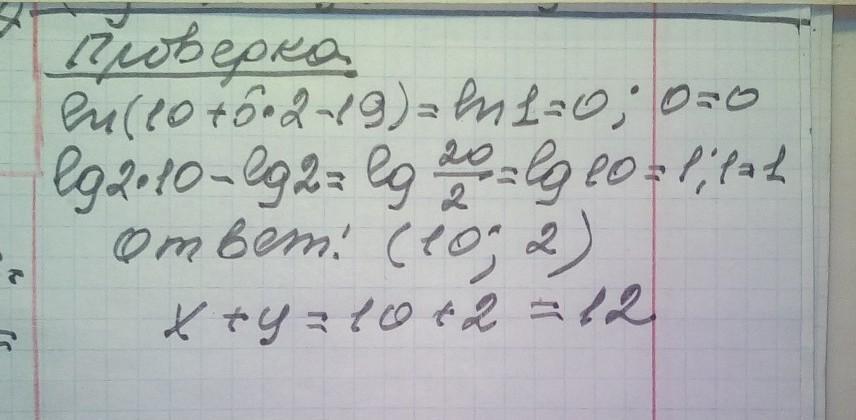 Проверка
ln(10+5·2-19)=ln1=0; 0=0
lg2·10-lg2=lg 20/2=lg10=1; 1=1
Ответ: (10; 2)
x+y=10+2=12